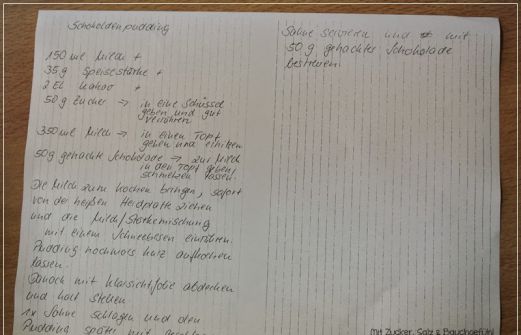 Schokoladenpudding
150 ml Milch +
35 g Speisestärke +
2 EL Kakao +
50 g Zucker → in eine Schüssel
geben und gut
verrühren
350 ml Milch → in einen Topf
geben und erhitzen
50 g gehackte Schokolade → zur Milch
in den Topf geben/
schmelzen lassen.
Die Milch zum Kochen bringen, sofort
von der heißen Herdplatte ziehen
und die Milch/Stärkemischung
mit einem Schneebesen einrühren.
Pudding nochmals kurz aufkochen
lassen.
Danach mit Klarsichtfolie abdecken
und kalt stellen
1x Sahne schlagen und den
Pudding später mit
Sahne servieren und mit
50 g gehackter Schokolade
bestreuen
Mit Zucker, Salz & Bauchgefühl